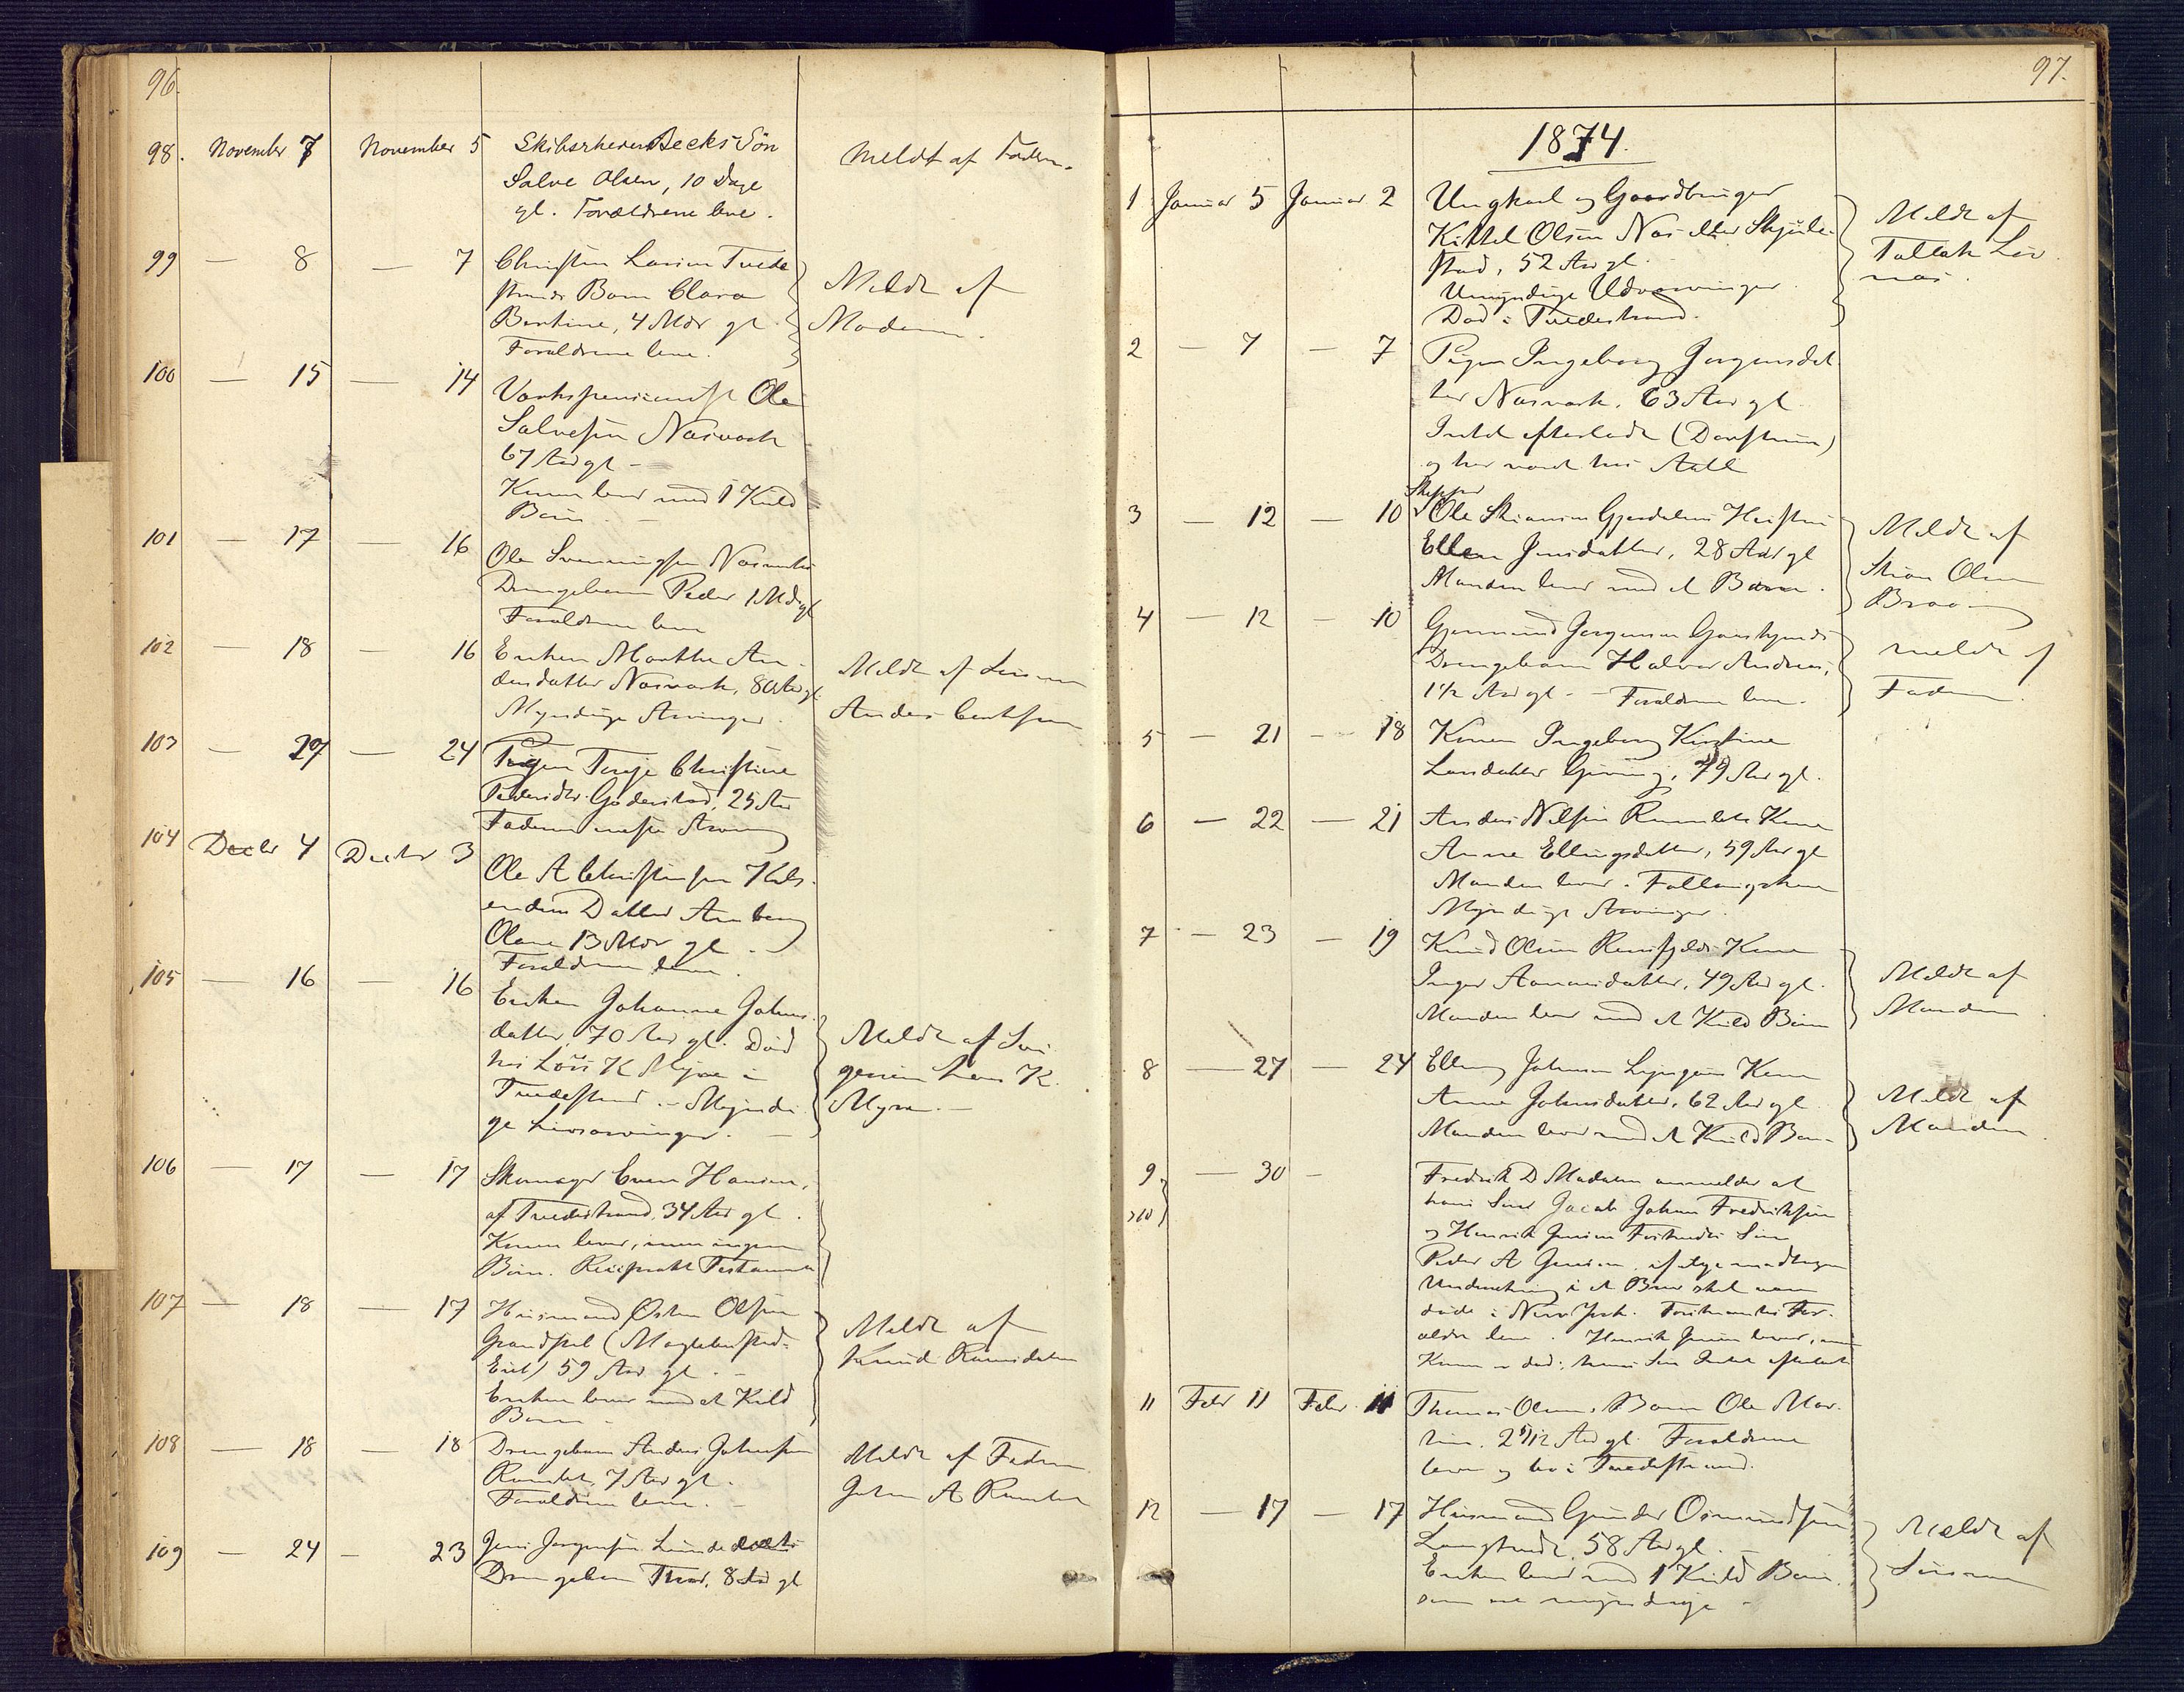 96.
98. November 7 November 5 Skibsrheder Becks Søn
Salve Olsen, 10 Dage
gl. Forældrene leve.
Meldt af Faderen.
99 — 8 — 7 Christen Larsen Tvede
strands Barn Clara
Bertine, 4 Mdr gl.
Forældrene leve.
Meldt af
Moderen.
100 — 15 — 14 Værkspensionist Ole
Salvesen Næsværk
67 Aar gl —
Konen lever med 1 Kuld
Børn. —
101 — 17 — 16 Ole Svenningsen Næsværks
Drengebarn Peder 1 Md gl
Forældrene leve
102 — 18 — 16 Enken Marthe An-
dersdatter Næsværk, 80 Aar gl.
Myndige Arvinger.
Meldt af Sønnen
Anders
103 — 27 — 24 Pigen Terje Christine
Pedersdtr. Goderstad, 25 Aar
Faderen næste Arving
104 Decbr 4 Decbr 3 Ole A Christensen
Datter Anne
Olane 13 Mdr gl. —
Forældrene leve.
105 — 16 — 16 Enken Johanne Johns-
datter, 70 Aar gl. Død
hos Lars K Myre i
Tvedestrand. — Myndi-
ge Livsarvinger. —
Meldt af Svi-
gersøn Lars K.
Myre. —
106 — 17 — 17 Skomager Even Hansen,
af Tvedestrand, 34 Aar gl.
Konen lever, men ingen
Børn. Reciprokt Testamente
107 — 18 — 17 Huusmand Østen Olsen
59 Aar gl. —
Enken lever med et Kuld
Børn —
Meldt af
Knud
108 — 18 — 18 Drengebarn Anders Johnsen
Ramlet, 7 Aar gl.
Forældrene leve. —
Meldt af Faderen
John A Ramlet
109 — 24 — 23 Jens Jørgensen
Drengebarn Thor, 8 Aar gl
97.
1874.
1 Januar 5 Januar 2 Ungkarl og Gaardbruger
Kittel Olsen Næs eller Skjule-
stad, 52 Aar gl.
Umyndige Udarvinger.
Død i Tvedestrand.
Meldt af
Tallak Løv
næs.
2 — 7 — 7 Pigen Ingeborg Jørgensdat
ter Næsværk, 63 Aar gl.
Intet efterladt (Døvstum)
og har været hos Aall
3 — 12 — 10 Skipper
Ole Skiansen Gjerdalens Hustru
Ellen Jensdatter, 28 Aar gl
Manden lever med et Barn.
Meldt af
Skian Olsen
4 — 12 — 10 Gjermund Jørgensen
Drengebarn Halvor Andreas,
1 1/2 Aar gl. — Forældrene leve.
Meldt af
Faderen.
5 — 21 — 18 Konen Ingeborg Kirstine
Larsdatter Gjeving, 79 Aar gl.
6 — 22 — 21 Anders Nilsen Ramlets Kone
Anne Ellingsdatter, 59 Aar gl
Manden lever.
Myndige Arvinger.
7 — 23 — 19 Knud Olsen Kone
Inger Aanonsdatter, 49 Aar gl.
Manden lever med et Kuld Børn
Meldt af
Manden
8 — 27 — 24 Elling Johnsen Kone
Anne Johnsdatter, 62 Aar gl.
Manden lever med et Kuld Børn
Meldt af
Manden.
9 — 30 — Fredrik D Madsen anmelder at
hans Søn Jacob Johan Fredriksen
og Henrik Jensen Søn
Peder A Jensen, ifølge modtagen
Underretning i et Brev skal være
døde i New York. For-
ældre leve. Henrik Jensen lever, men
Konen er død; hans Søn Intet efterladt
10
11 Febr 11 Febr. 11 Thomas Olsens Barn Ole Mar-
tin, 2 9/12 Aar gl. Forældrene
leve og bo i Tvedestrand.
12 — 17 — 17 Huusmand Gunder Osmundsen
58 Aar gl. —
Enken lever med 1 Kuld Børn
som ere myndige —
Meldt af
Sønnen